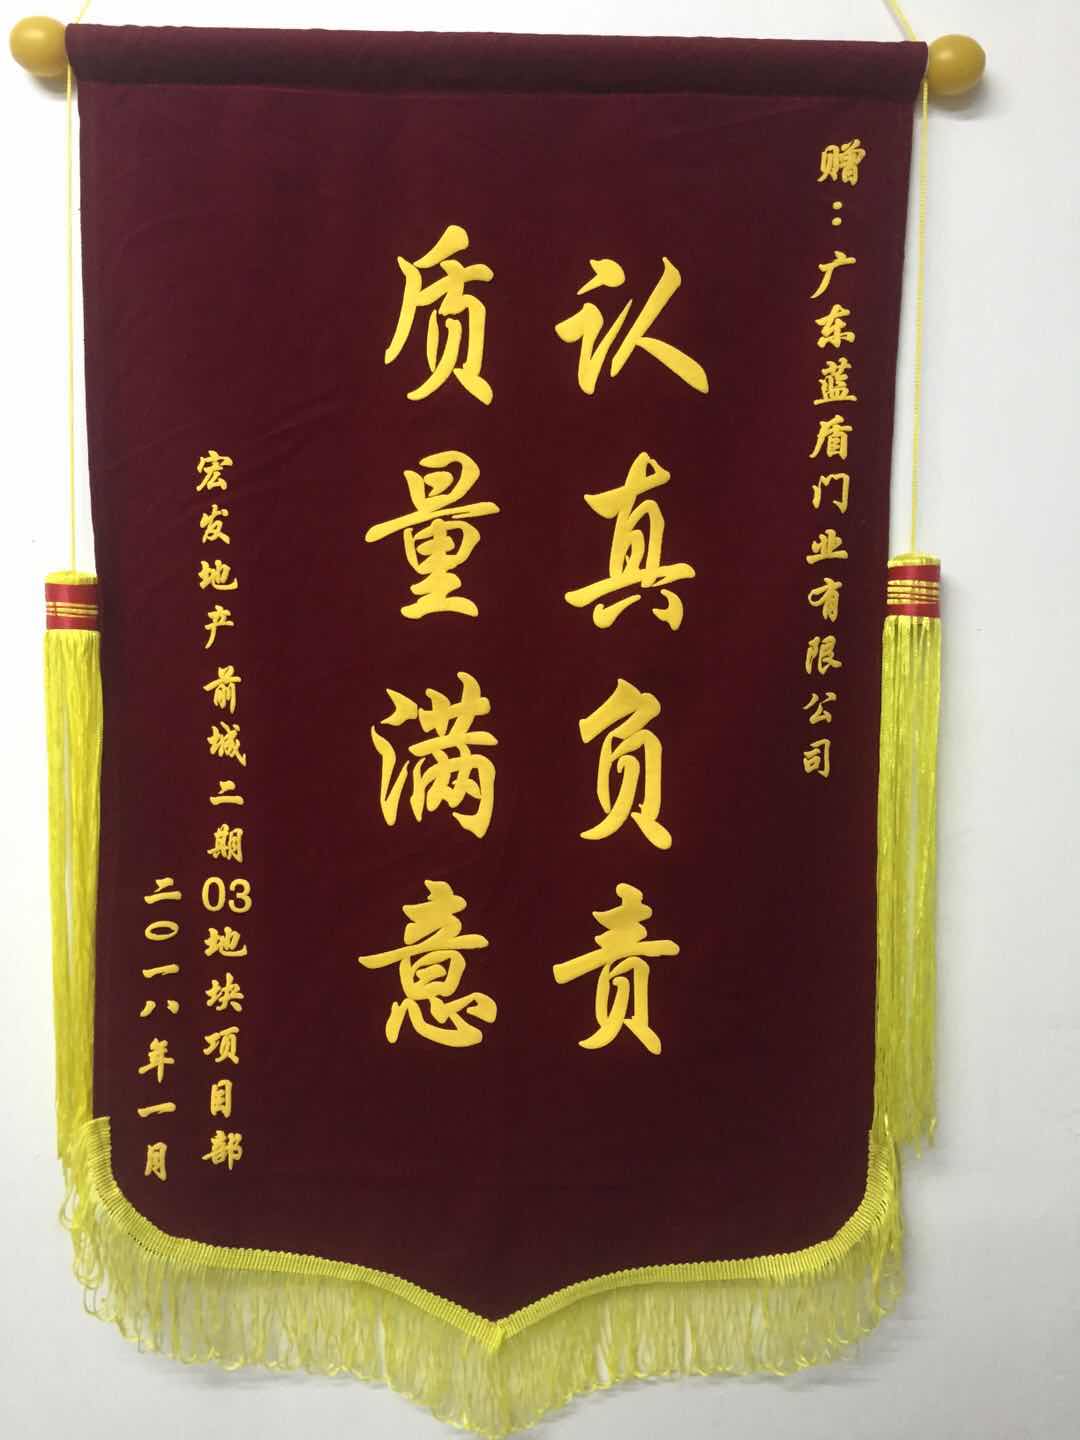 赠：广东蓝盾门业有限公司
认真负责
质量满意
宏发地产前城二期03地块项目部
二〇一八年一月